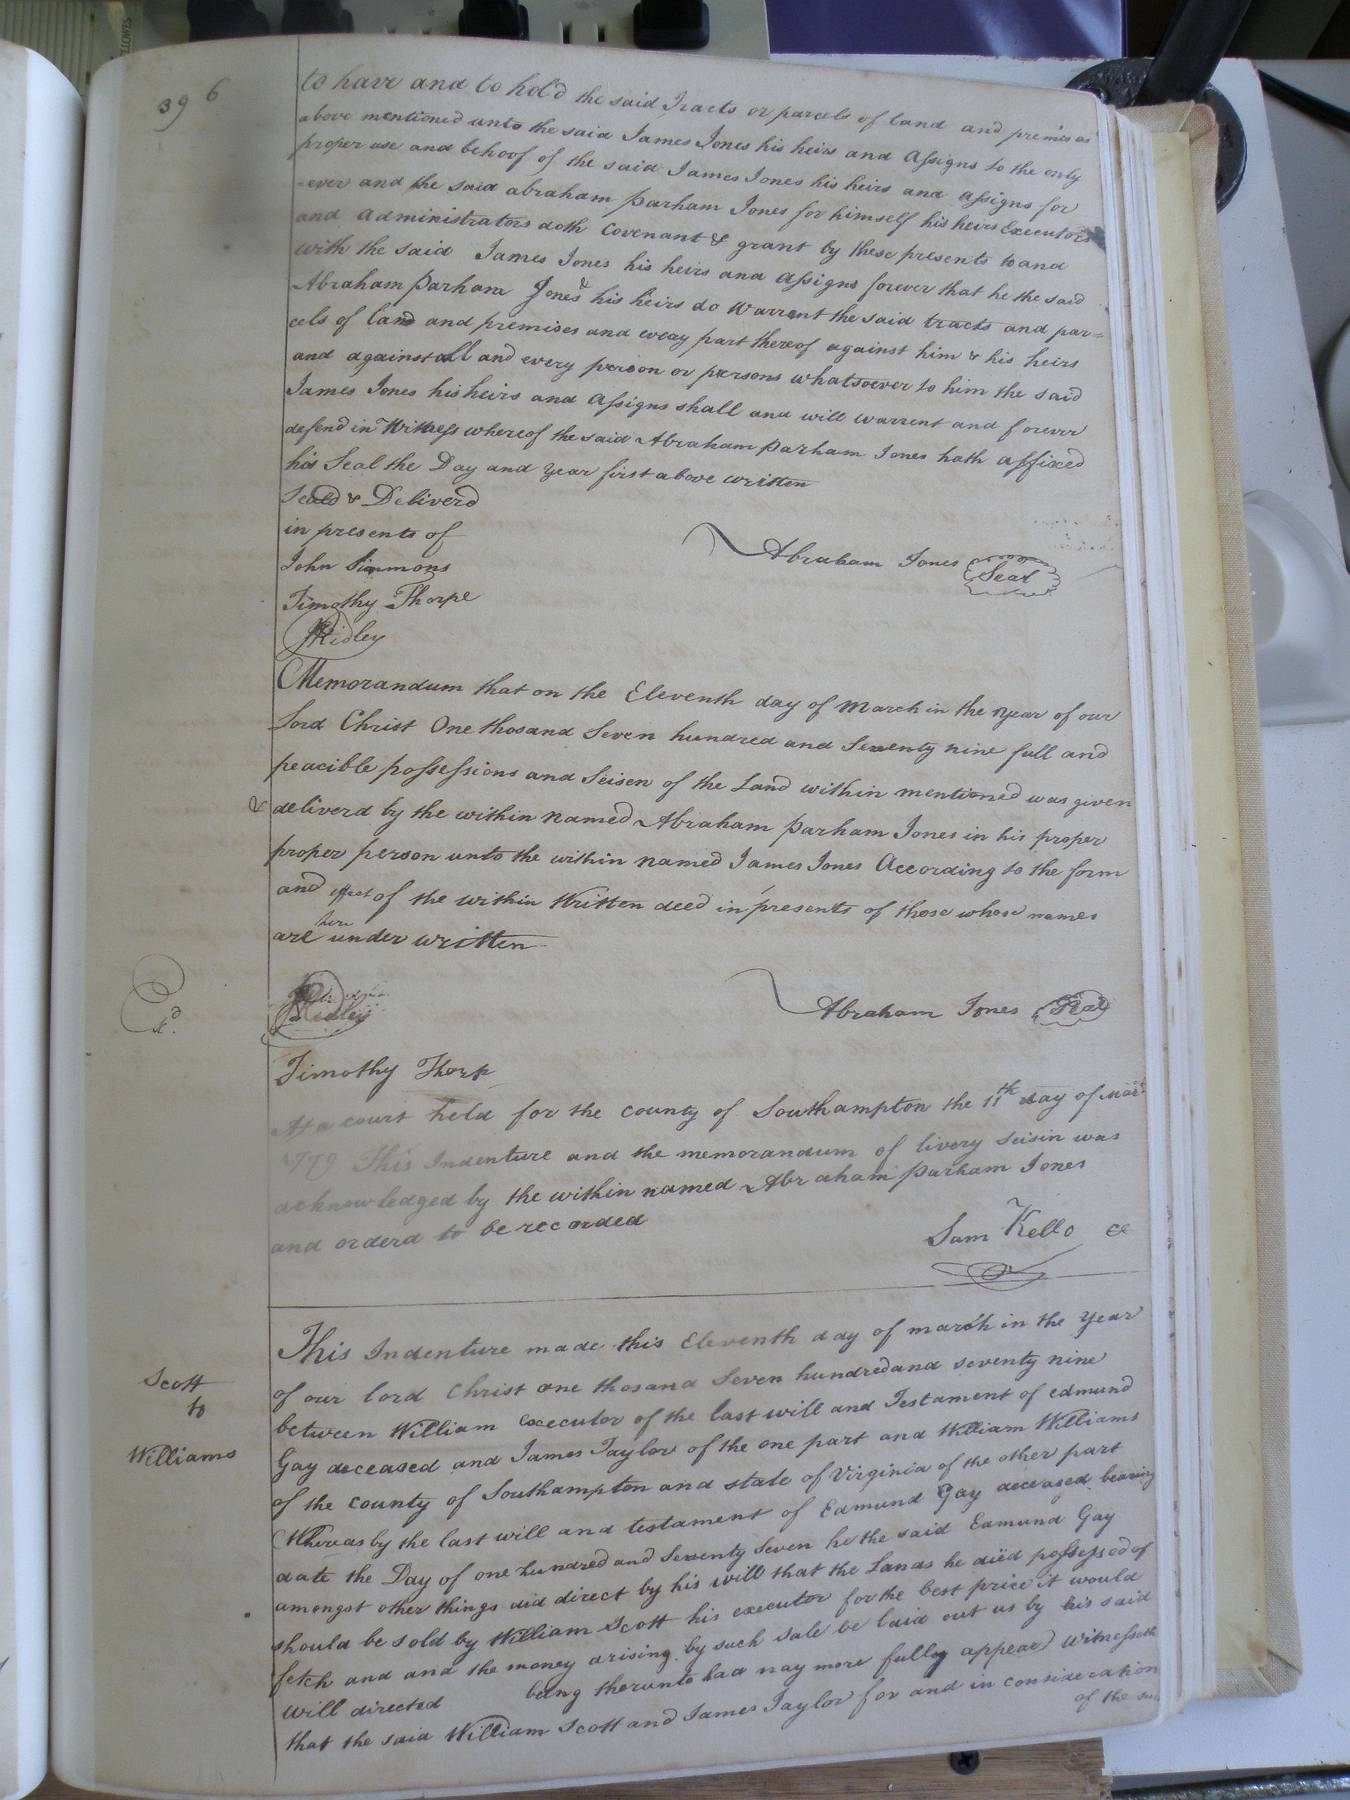 396
to have and to hold the said Tracts or parcels of land and premises as
above mentioned unto the said James Jones his heirs and Assigns to the only
proper use and behoof of the said James Jones his heirs and Assigns for
-ever and the said abraham Parham Jones for himself his heirs Executors
and Administrators doth Covenant & grant by these presents to and
with the said James Jones his heirs and Assigns forever that he the said
Abraham Parham Jones & his heirs do Warrent the said tracts and par=
cels of land and premises and every part thereof against him & his heirs
and against all and every person or persons whatsoever to him the said
James Jones his heirs and Assigns shall and will warrent and forever
defend in Witness whereof the said Abraham Parham Jones hath affixed
his Seal the Day and year first above written
Seald & Deliverd
in presents of
John Simmons
Timothy Thorpe
Ridley
Abraham Jones Seal
Memorandum that on the Eleventh day of March in the Year of our
Lord Christ One thosand Seven hundred and Seventy nine full and
peacible possessions and Seisen of the Land within mentioned was given
& deliverd by the within named Abraham Parham Jones in his proper
proper person unto the within named James Jones According to the form
and effect of the within Written deed in presents of those whose names
are here under written
Ridley
Abraham Jones Seal
Timothy Thorp
At a court held for the county of Southampton the 11th day of Mar:
1779 This Indenture and the memorandum of livery seisin was
acknowledged by the within named Abraham Parham Jones
and orderd to be recorded
Sam Kello
Scott
to
Williams
This Indenture made this Eleventh day of march in the year
of our lord Christ one thosand Seven hundred and seventy nine
between William executor of the last will and Testament of edmund
Gay deceased and James Taylor of the one part and William Williams
of the county of Southampton and state of Virginia of the other part
Whereas by the last will and testament of Edmund Gay deceased bearing
date the Day of one hundred and Seventy Seven he the said Edmund Gay
amongst other things did direct by his will that the Lands he died possessed of
should be sold by William Scott his executor for the best price it would
fetch and and the money arising by such sale be laid out as by his said
will directed being therunto had may more fully appear) Witnesseth
that the said William Scott and James Taylor for and in consideration
of the